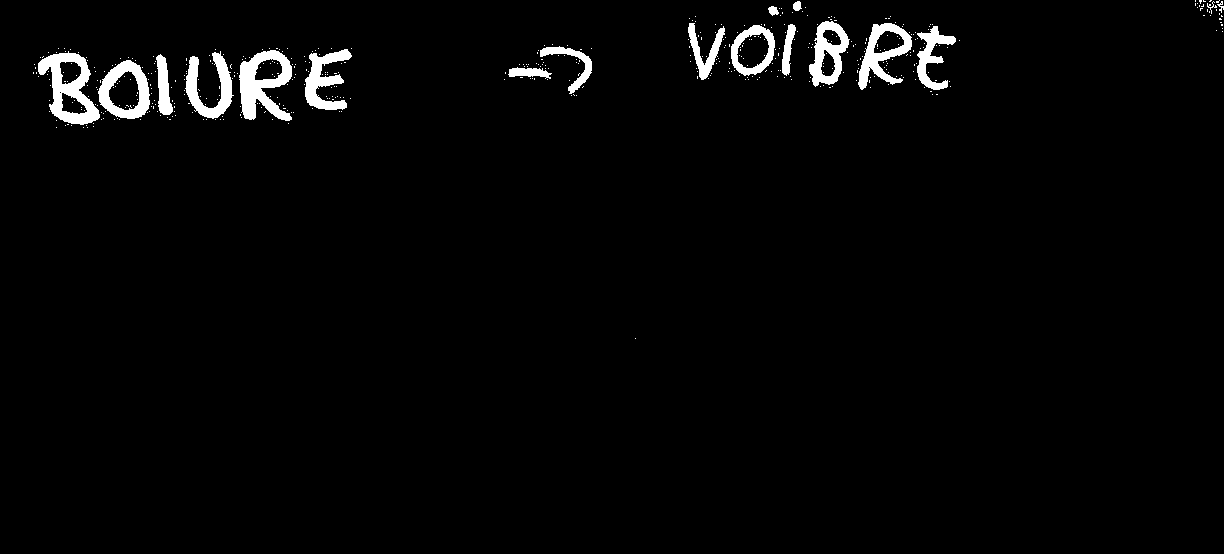 BOIURE → VOÏBRE